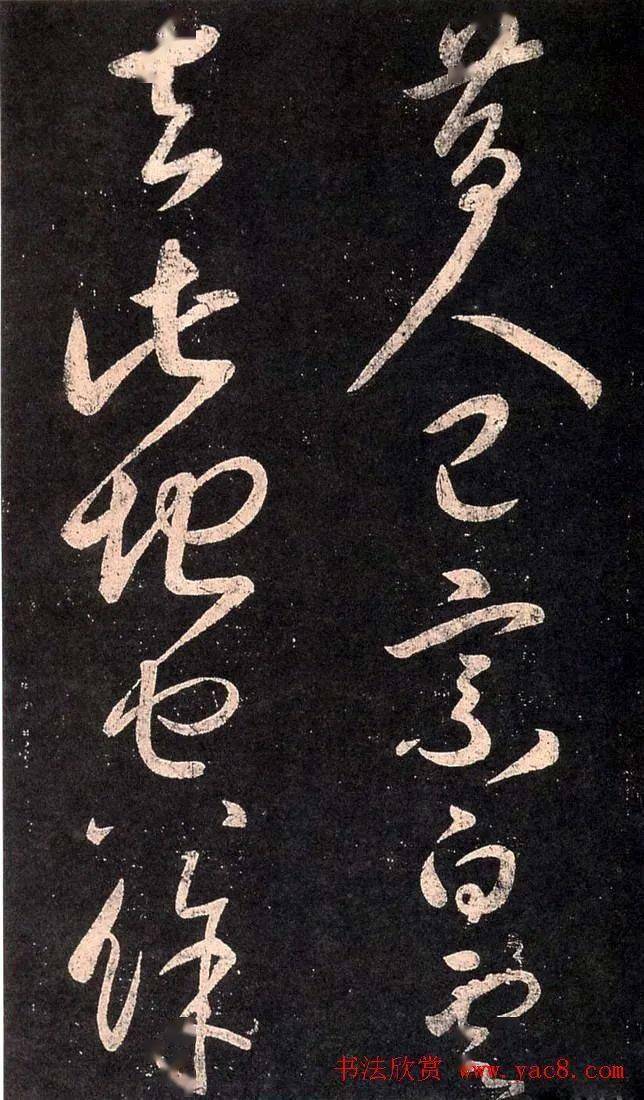 昔人已乘白雲
去此地空餘
书法欣赏 www.yac8.com